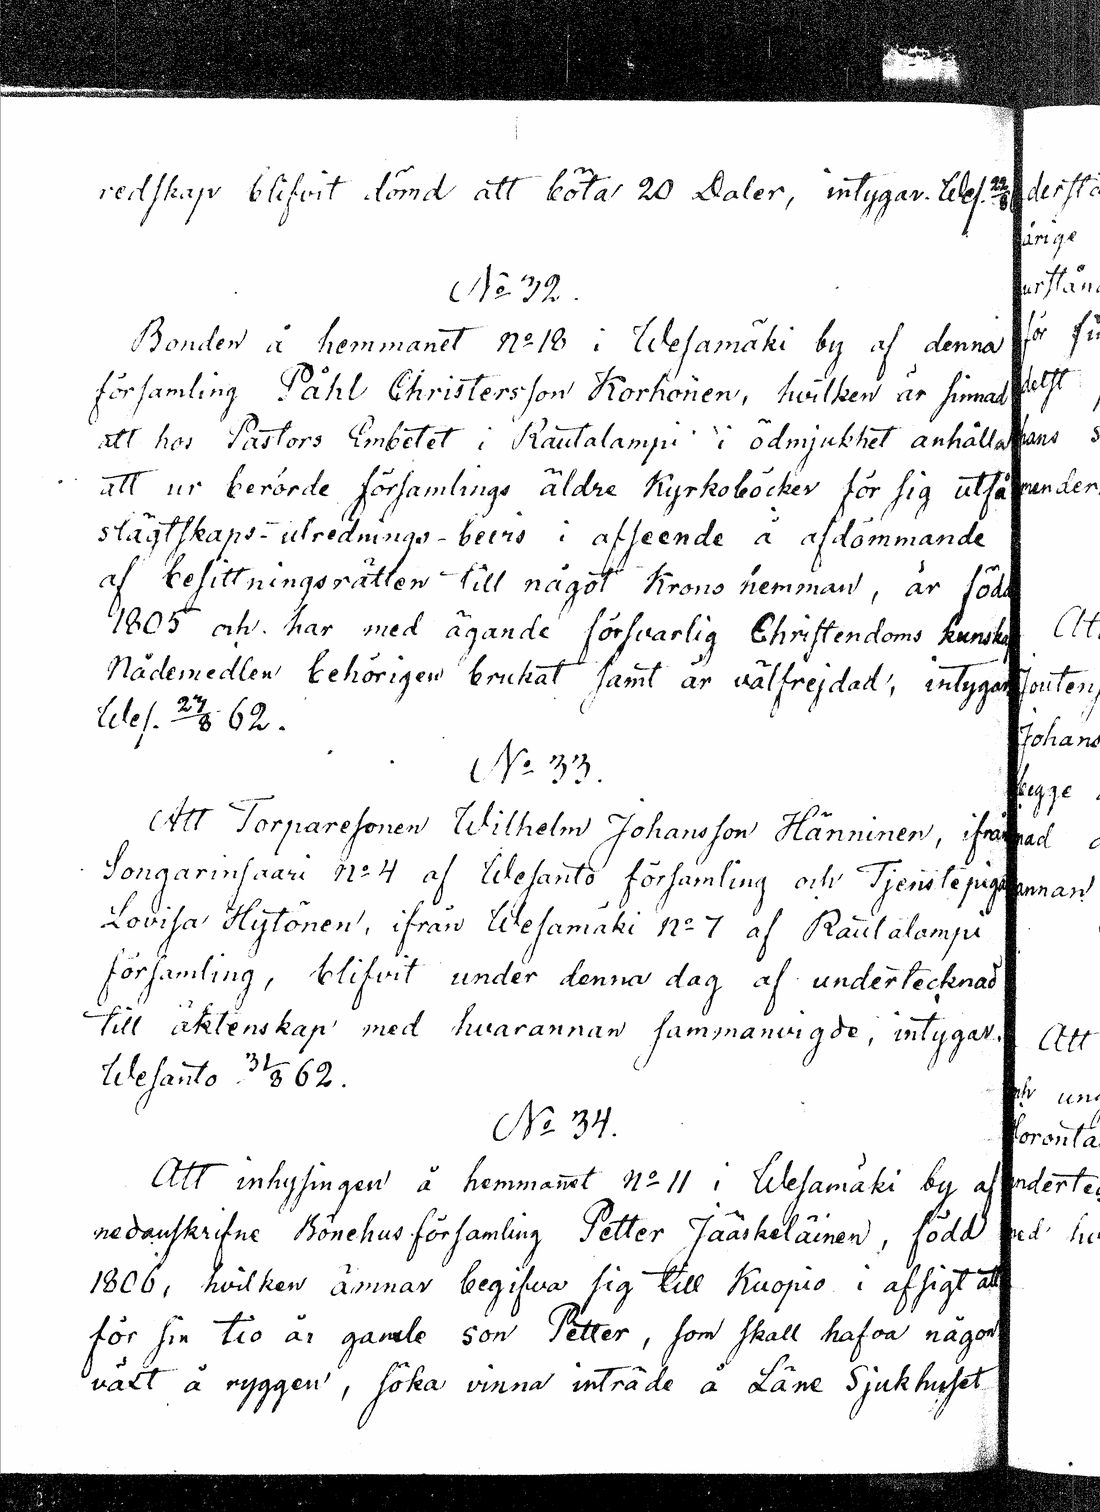 redskap blifvit dömd att böta 20 Daler, intygar. Wes. 22/8
No 32.
Bonden å hemmanet No 18 i Wesamäki by af denna
församling Påhl Christersson Korhonen, hvilken är sinnad
att hos Pastors Embetet i Rautalampi i ödmjukhet anhålla
att ur berörde församlings äldre Kyrkoböcker för sig utfå
slägtskaps-utrednings-bevis i afseende å afdömmande
af besittningsrätten till något Krono hemman, är född
1805 och har med ägande försvarlig Christendoms kunskap
Nådemedlen behörigen brukat samt är välfrejdad, intygar
Wes. 27/8 62.
No 33.
Att Torparesonen Wilhelm Johansson Hänninen, ifrån
Songarinsaari No 4 af Wesanto församling och Tjenstepigan
Lovisa Hytönen, ifrån Wesamäki No 7 af Rautalampi
församling, blifvit under denna dag af undertecknad
till äktenskap med hvarannan sammanvigde, intygar.
Wesanto 31/8 62.
No 34.
Att inhysingen å hemmanet No 11 i Wesamäki by af
nedanskrifne Bönehus församling Petter Jääskeläinen, född
1806, hvilken ämnar begifva sig till Kuopio i afsigt att
för sin tio år gamle son Petter, som skall hafva någon
växt å ryggen, söka vinna inträde å Läne Sjukhuset